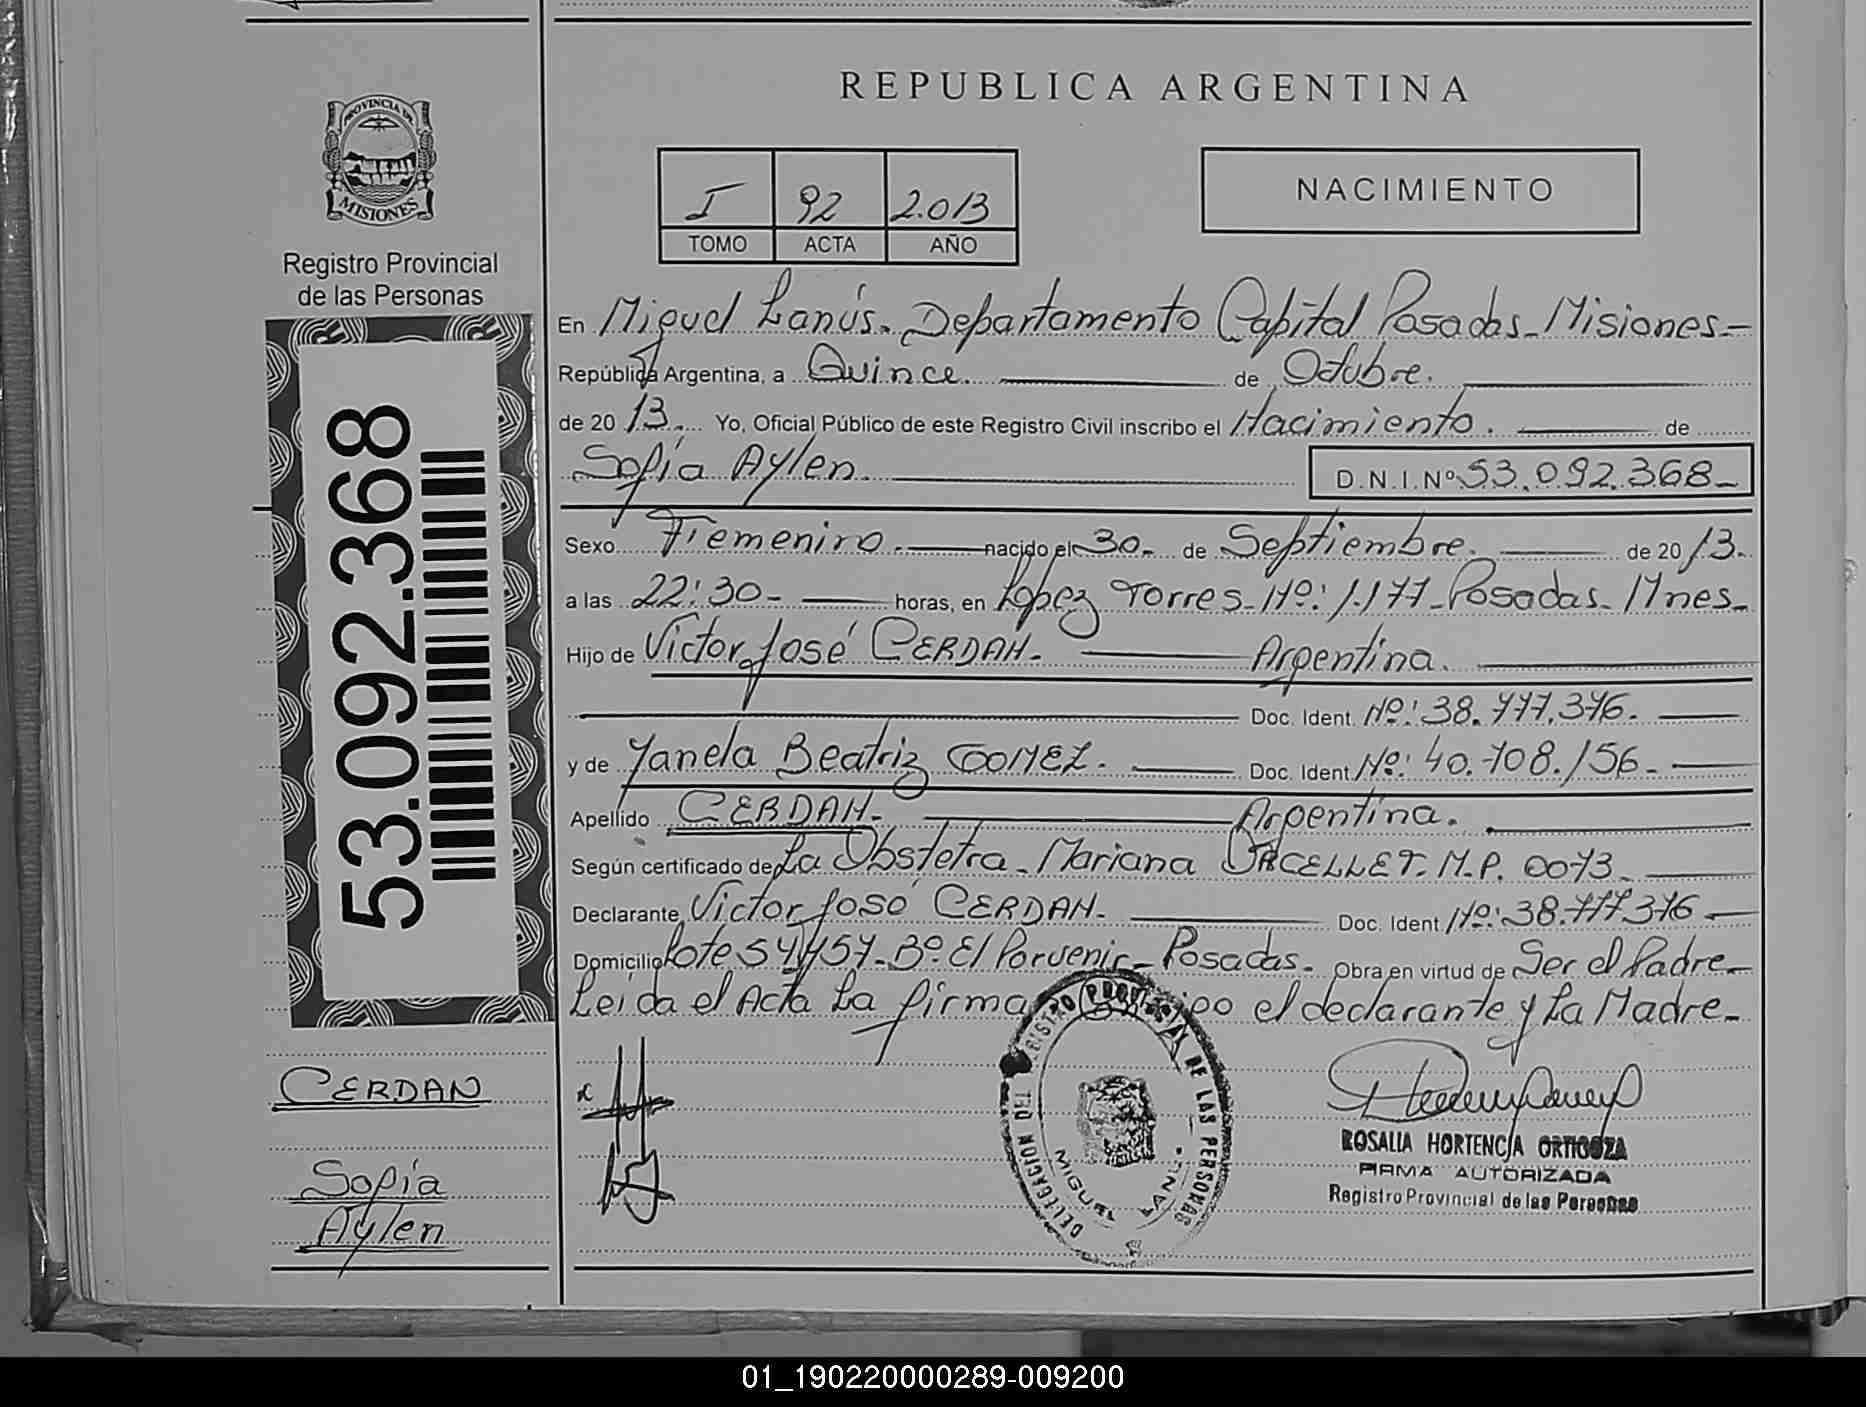 REPUBLICA ARGENTINA
PROVINCIA DE
MISIONES
Registro Provincial
de las Personas
I 92 2.013
TOMO ACTA AÑO
NACIMIENTO
53.092.368
En Miguel Lanús. Departamento Capital Posadas - Misiones -
República Argentina, a Quince. de Octubre.
de 20 13. Yo, Oficial Público de este Registro Civil inscribo el Nacimiento. de
Sofía Aylen. D.N.I.Nº 53.092.368-
Sexo Femenino. nacido el 30. de Septiembre. de 20 13.
a las 22:30- horas, en López Torres - Nº: 1.177 - Posadas - Mnes.
Hijo de Victor José CERDAN. Argentina.
Doc. Ident. Nº: 38.777.376.
y de Yanela Beatriz GOMEZ. Doc. Ident. Nº: 40.708.156.
Apellido CERDAN. Argentina.
Según certificado de La Obstetra - Mariana M.P. 0073.
Declarante Victor José CERDAN. Doc. Ident. Nº: 38.777.376
Domicilio Lote 54 y 57 - Bº. El Porvenir - Posadas. Obra en virtud de Ser el Padre-
Leída el Acta La firma el declarante y La Madre-
CERDAN
Sofía
Aylen
DELEGACION REGISTRO PROVINCIAL DE LAS PERSONAS
MIGUEL LANUS
ROSALIA HORTENCIA ORTIGOZA
FIRMA AUTORIZADA
Registro Provincial de las Personas
01_190220000289-009200